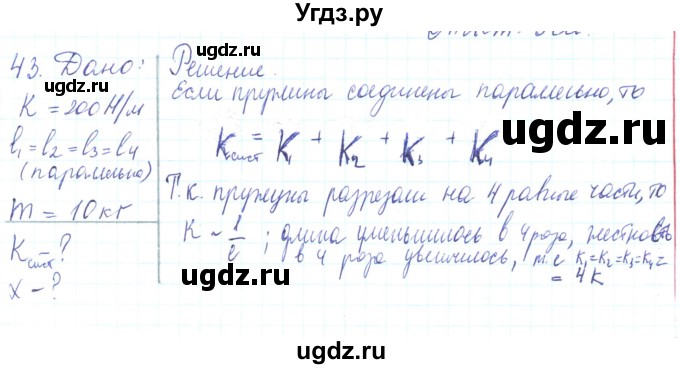 Угдз.ру
43. Дано:
K = 200 Н/м
l₁ = l₂ = l₃ = l₄
(паралельно)
m = 10 кг
Kсист - ?
x - ?
Решение.
Если пружины соединены паралельно, то
Kсист = K₁ + K₂ + K₃ + K₄
Т.к. пружуны разрезали на 4 равные части, то
K ~ 1/l ; длина уменьшилось в 4 роза, жесткость
в 4 роза увеличилось, т.е K₁=K₂=K₃=K₄=
= 4K
uдgz.ru
uдgz.ru
uдgz.ru
uдgz.ru
uдgz.ru
uдgz.ru
uдgz.ru
uдgz.ru